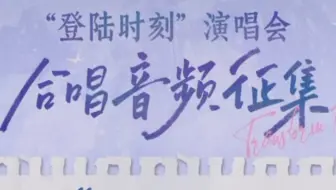 “登陆时刻”演唱会
合唱音频征集